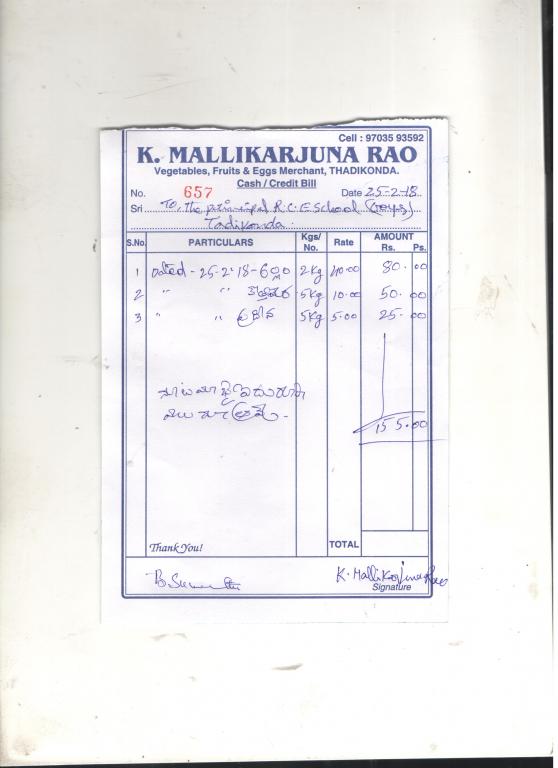 Cell : 97035 93592
K. MALLIKARJUNA RAO
Vegetables, Fruits & Eggs Merchant, THADIKONDA.
Cash / Credit Bill
No. 657 Date 25-2-18
Sri To, the principal R.C.E School (Boys)
Tadikonda.
S.No. PARTICULARS Kgs/ No. Rate AMOUNT Rs. Ps.
1 Dated - 25-2-18 - 2kg 40.00 80.00
2 " " 5kg 10.00 50.00
3 " " 5kg 5.00 25.00
155.00
Thank You! TOTAL
K. Mallikarjuna Rao
Signature